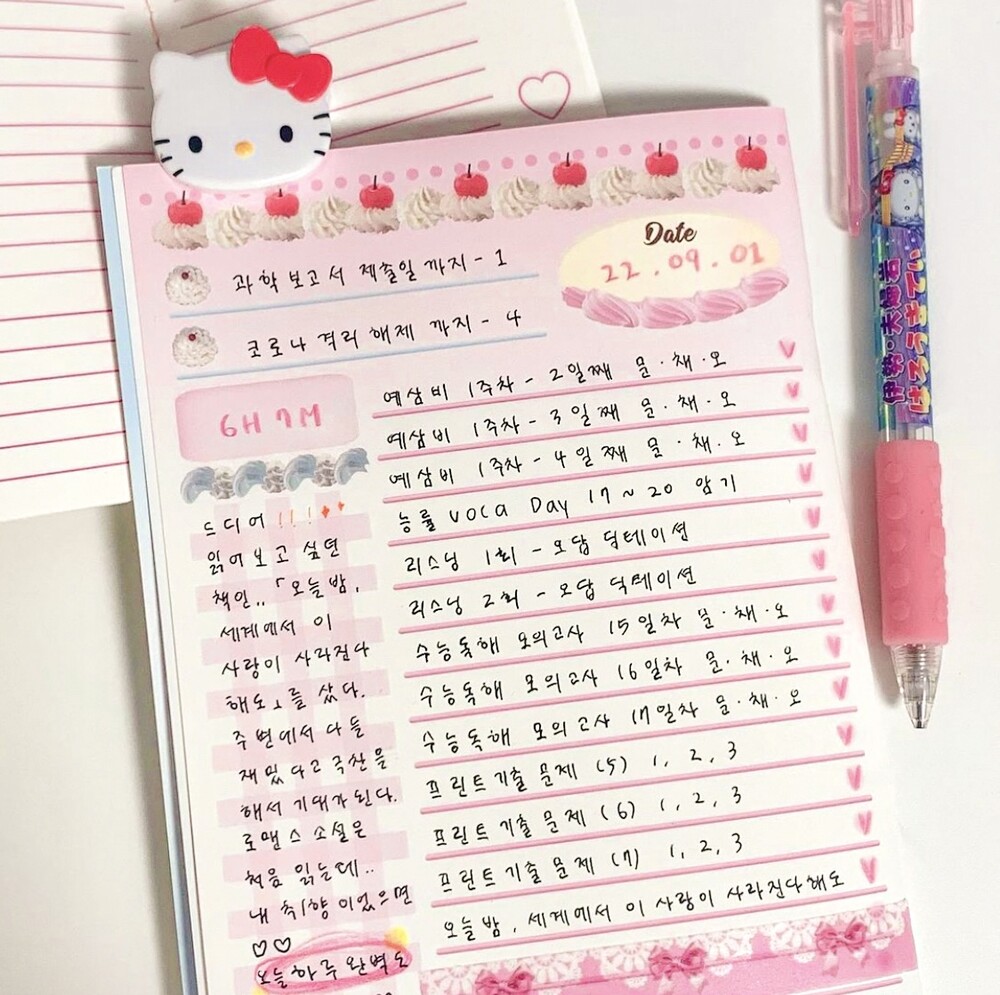 과학 보고서 제출일 까지 - 1
코로나 격리 해제 까지 - 4
Date
22.09.01
6H 7M
예삼비 1주차 - 2일째 문·채·오
예삼비 1주차 - 3일째 문·채·오
예삼비 1주차 - 4일째 문·채·오
능률 voca Day 17~20 암기
리스닝 1회 - 오답 딕테이션
리스닝 2회 - 오답 딕테이션
수능독해 모의고사 15일차 문·채·오
수능독해 모의고사 16일차 문·채·오
수능독해 모의고사 17일차 문·채·오
프린트 기출 문제 (5) 1, 2, 3
프린트 기출 문제 (6) 1, 2, 3
프린트 기출 문제 (7) 1, 2, 3
오늘밤, 세계에서 이 사랑이 사라진다해도
드디어 !!!
읽어보고 싶던
책인..「오늘밤,
세계에서 이
사랑이 사라진다
해도」를 샀다.
주변에서 다들
재밌다고 극찬을
해서 기대가 된다.
로맨스 소설은
처음 읽는데..
내 취향이었으면
♡♡
오늘하루 완벽도
伊勢·夫婦岩
はろうきてぃ